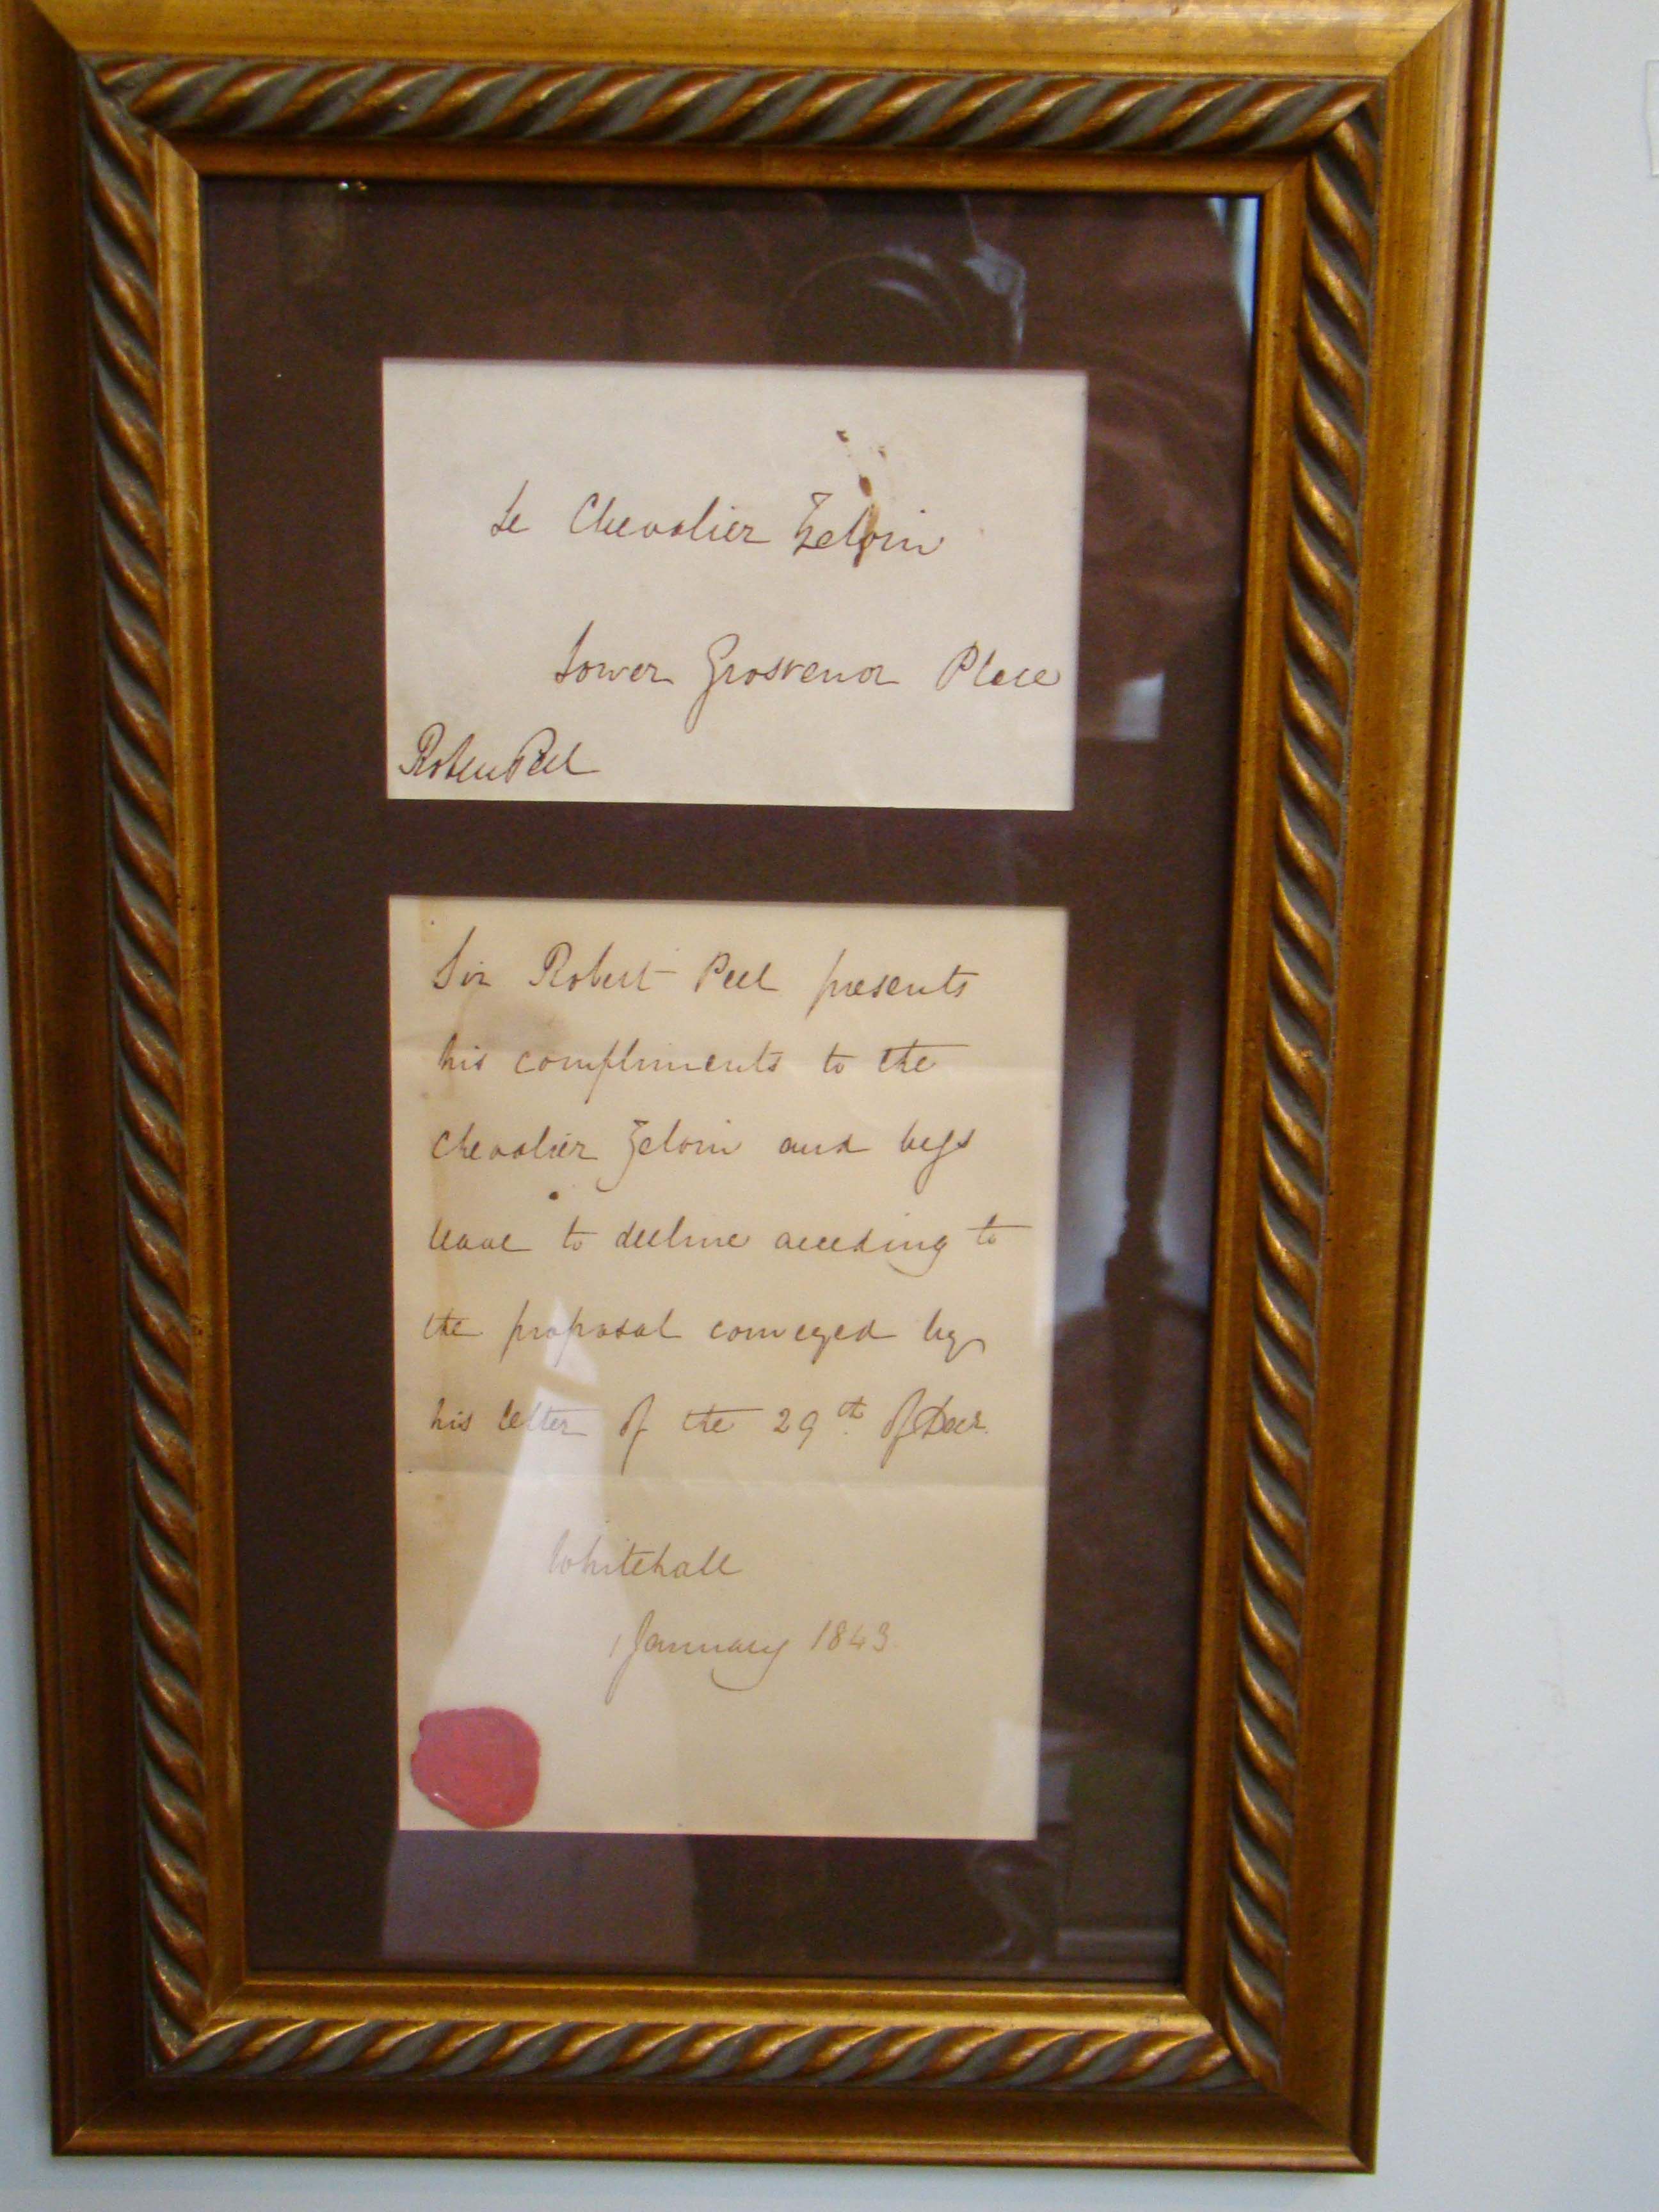 Le Chevalier
Lower Grosvenor Place
Robert Peel
Sir Robert Peel presents
his compliments to the
Chevalier and begs
leave to decline acceding to
the proposal conveyed by
his letter of the 29th of Decr.
Whitehall
1 January 1843